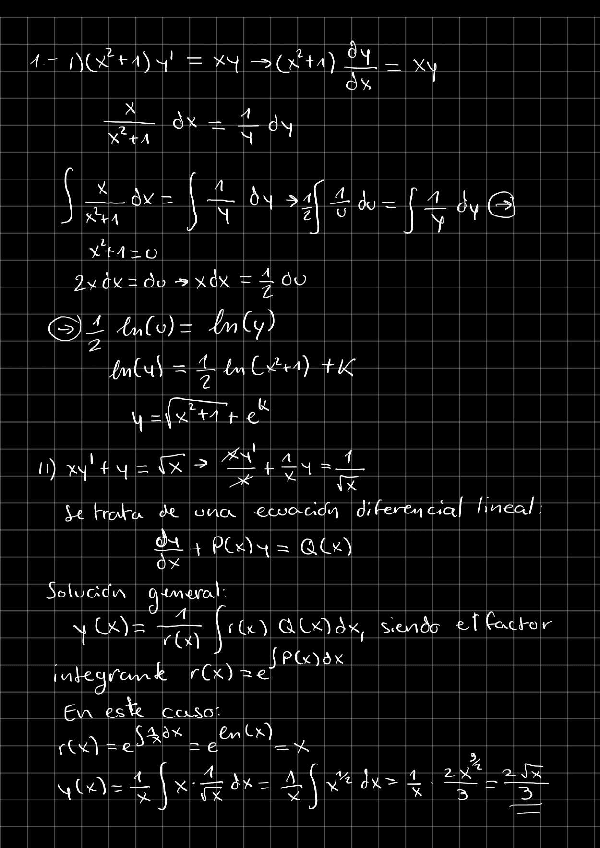 1.- i) (x²+1) y' = xy → (x²+1) dy/dx = xy
x/(x²+1) dx = 1/y dy
∫ x/(x²+1) dx = ∫ 1/y dy → 1/2 ∫ 1/u du = ∫ 1/y dy ⊝→
x²+1 = u
2x dx = du → x dx = 1/2 du
⊝→ 1/2 ln(u) = ln(y)
ln(y) = 1/2 ln(x²+1) + K
y = √(x²+1) + e^K
ii) xy' + y = √x → xy'/x + 1/x y = 1/√x
Se trata de una ecuación diferencial lineal:
dy/dx + P(x)y = Q(x)
Solución general:
y(x) = 1/r(x) ∫ r(x) Q(x) dx, siendo el factor
integrante r(x) = e^∫P(x)dx
En este caso:
r(x) = e^∫1/x dx = e^ln(x) = x
y(x) = 1/x ∫ x · 1/√x dx = 1/x ∫ x^1/2 dx = 1/x · 2x^3/2/3 = 2√x/3